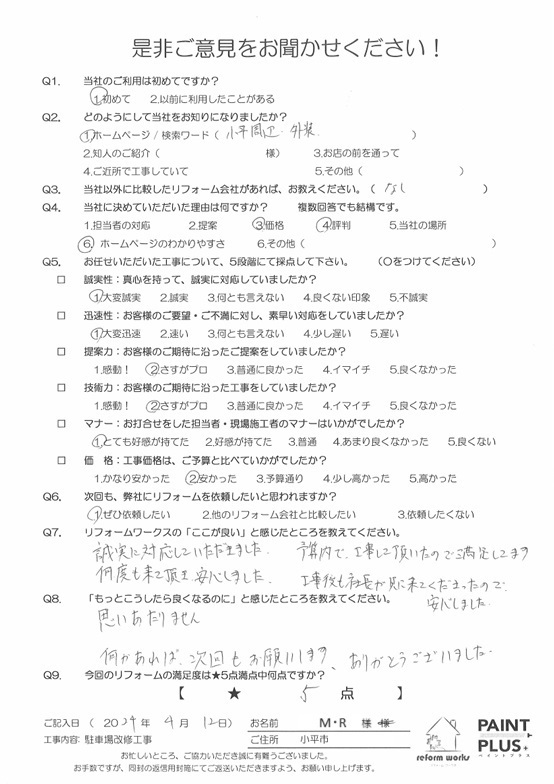 是非ご意見をお聞かせください！
Q1. 当社のご利用は初めてですか？
1.初めて 2.以前に利用したことがある
Q2. どのようにして当社をお知りになりましたか？
1.ホームページ / 検索ワード（ 小平周辺 外装 ）
2.知人のご紹介（ 様） 3.お店の前を通って
4.ご近所で工事していて 5.その他（ ）
Q3. 当社以外に比較したリフォーム会社があれば、お教えください。（ なし ）
Q4. 当社に決めていただいた理由は何ですか？ 複数回答でも結構です。
1.担当者の対応 2.提案 3.価格 4.評判 5.当社の場所
6. ホームページのわかりやすさ 6.その他（ ）
Q5. お任せいただいた工事について、5段階にて採点して下さい。 （○をつけてください）
□ 誠実性：真心を持って、誠実に対応していましたか？
1.大変誠実 2.誠実 3.何とも言えない 4.良くない印象 5.不誠実
□ 迅速性：お客様のご要望・ご不満に対し、素早い対応をしていましたか？
1.大変迅速 2.速い 3.何とも言えない 4.少し遅い 5.遅い
□ 提案力：お客様のご期待に沿ったご提案をしていましたか？
1.感動！ 2.さすがプロ 3.普通に良かった 4.イマイチ 5.良くなかった
□ 技術力：お客様のご期待に沿った工事をしていましたか？
1.感動！ 2.さすがプロ 3.普通に良かった 4.イマイチ 5.良くなかった
□ マナー：お打合せをした担当者・現場施工者のマナーはいかがでしたか？
1.とても好感が持てた 2.好感が持てた 3.普通 4.あまり良くなかった 5.良くない
□ 価 格：工事価格は、ご予算と比べていかがでしたか？
1.かなり安かった 2.安かった 3.予算通り 4.少し高かった 5.高かった
Q6. 次回も、弊社にリフォームを依頼したいと思われますか？
1.ぜひ依頼したい 2.他のリフォーム会社と比較したい 3.依頼したくない
Q7. リフォームワークスの「ここが良い」と感じたところを教えてください。
誠実に対応していただきました。 予算内で、工事して頂いたので満足してます
何度も来て頂き安心しました。 工事後も社長が見に来てくださったので、
安心しました。
Q8. 「もっとこうしたら良くなるのに」と感じたところを教えてください。
思いあたりません
何かあれば、次回もお願いします、ありがとうございました。
Q9. 今回のリフォームの満足度は★5点満点中何点ですか？
【 ★ 5 点 】
ご記入日（ 2024年 4月 12日） お名前 M・R 様 様
工事内容: 駐車場改修工事 ご住所 小平市
reform works
PAINT PLUS+
ペイントプラス
お忙しいところ、ご協力いただき誠に有難うございました。
お手数ですが、同封の返信用封筒にてご返送いただきますよう、お願い申し上げます。